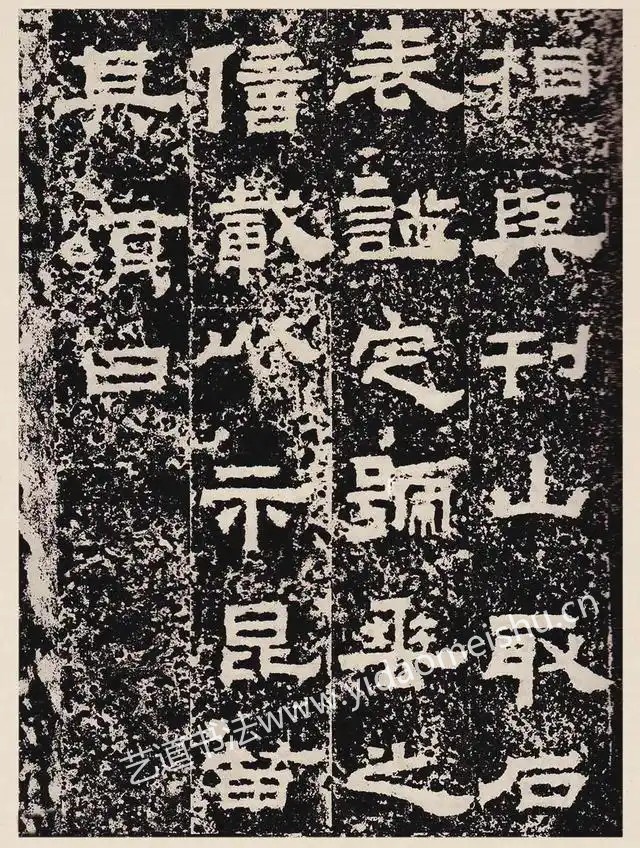 相與刊山取石
表謚定號垂之
億載以示昆苗
其頌曰
艺道书法www.yidaomeishu.cn